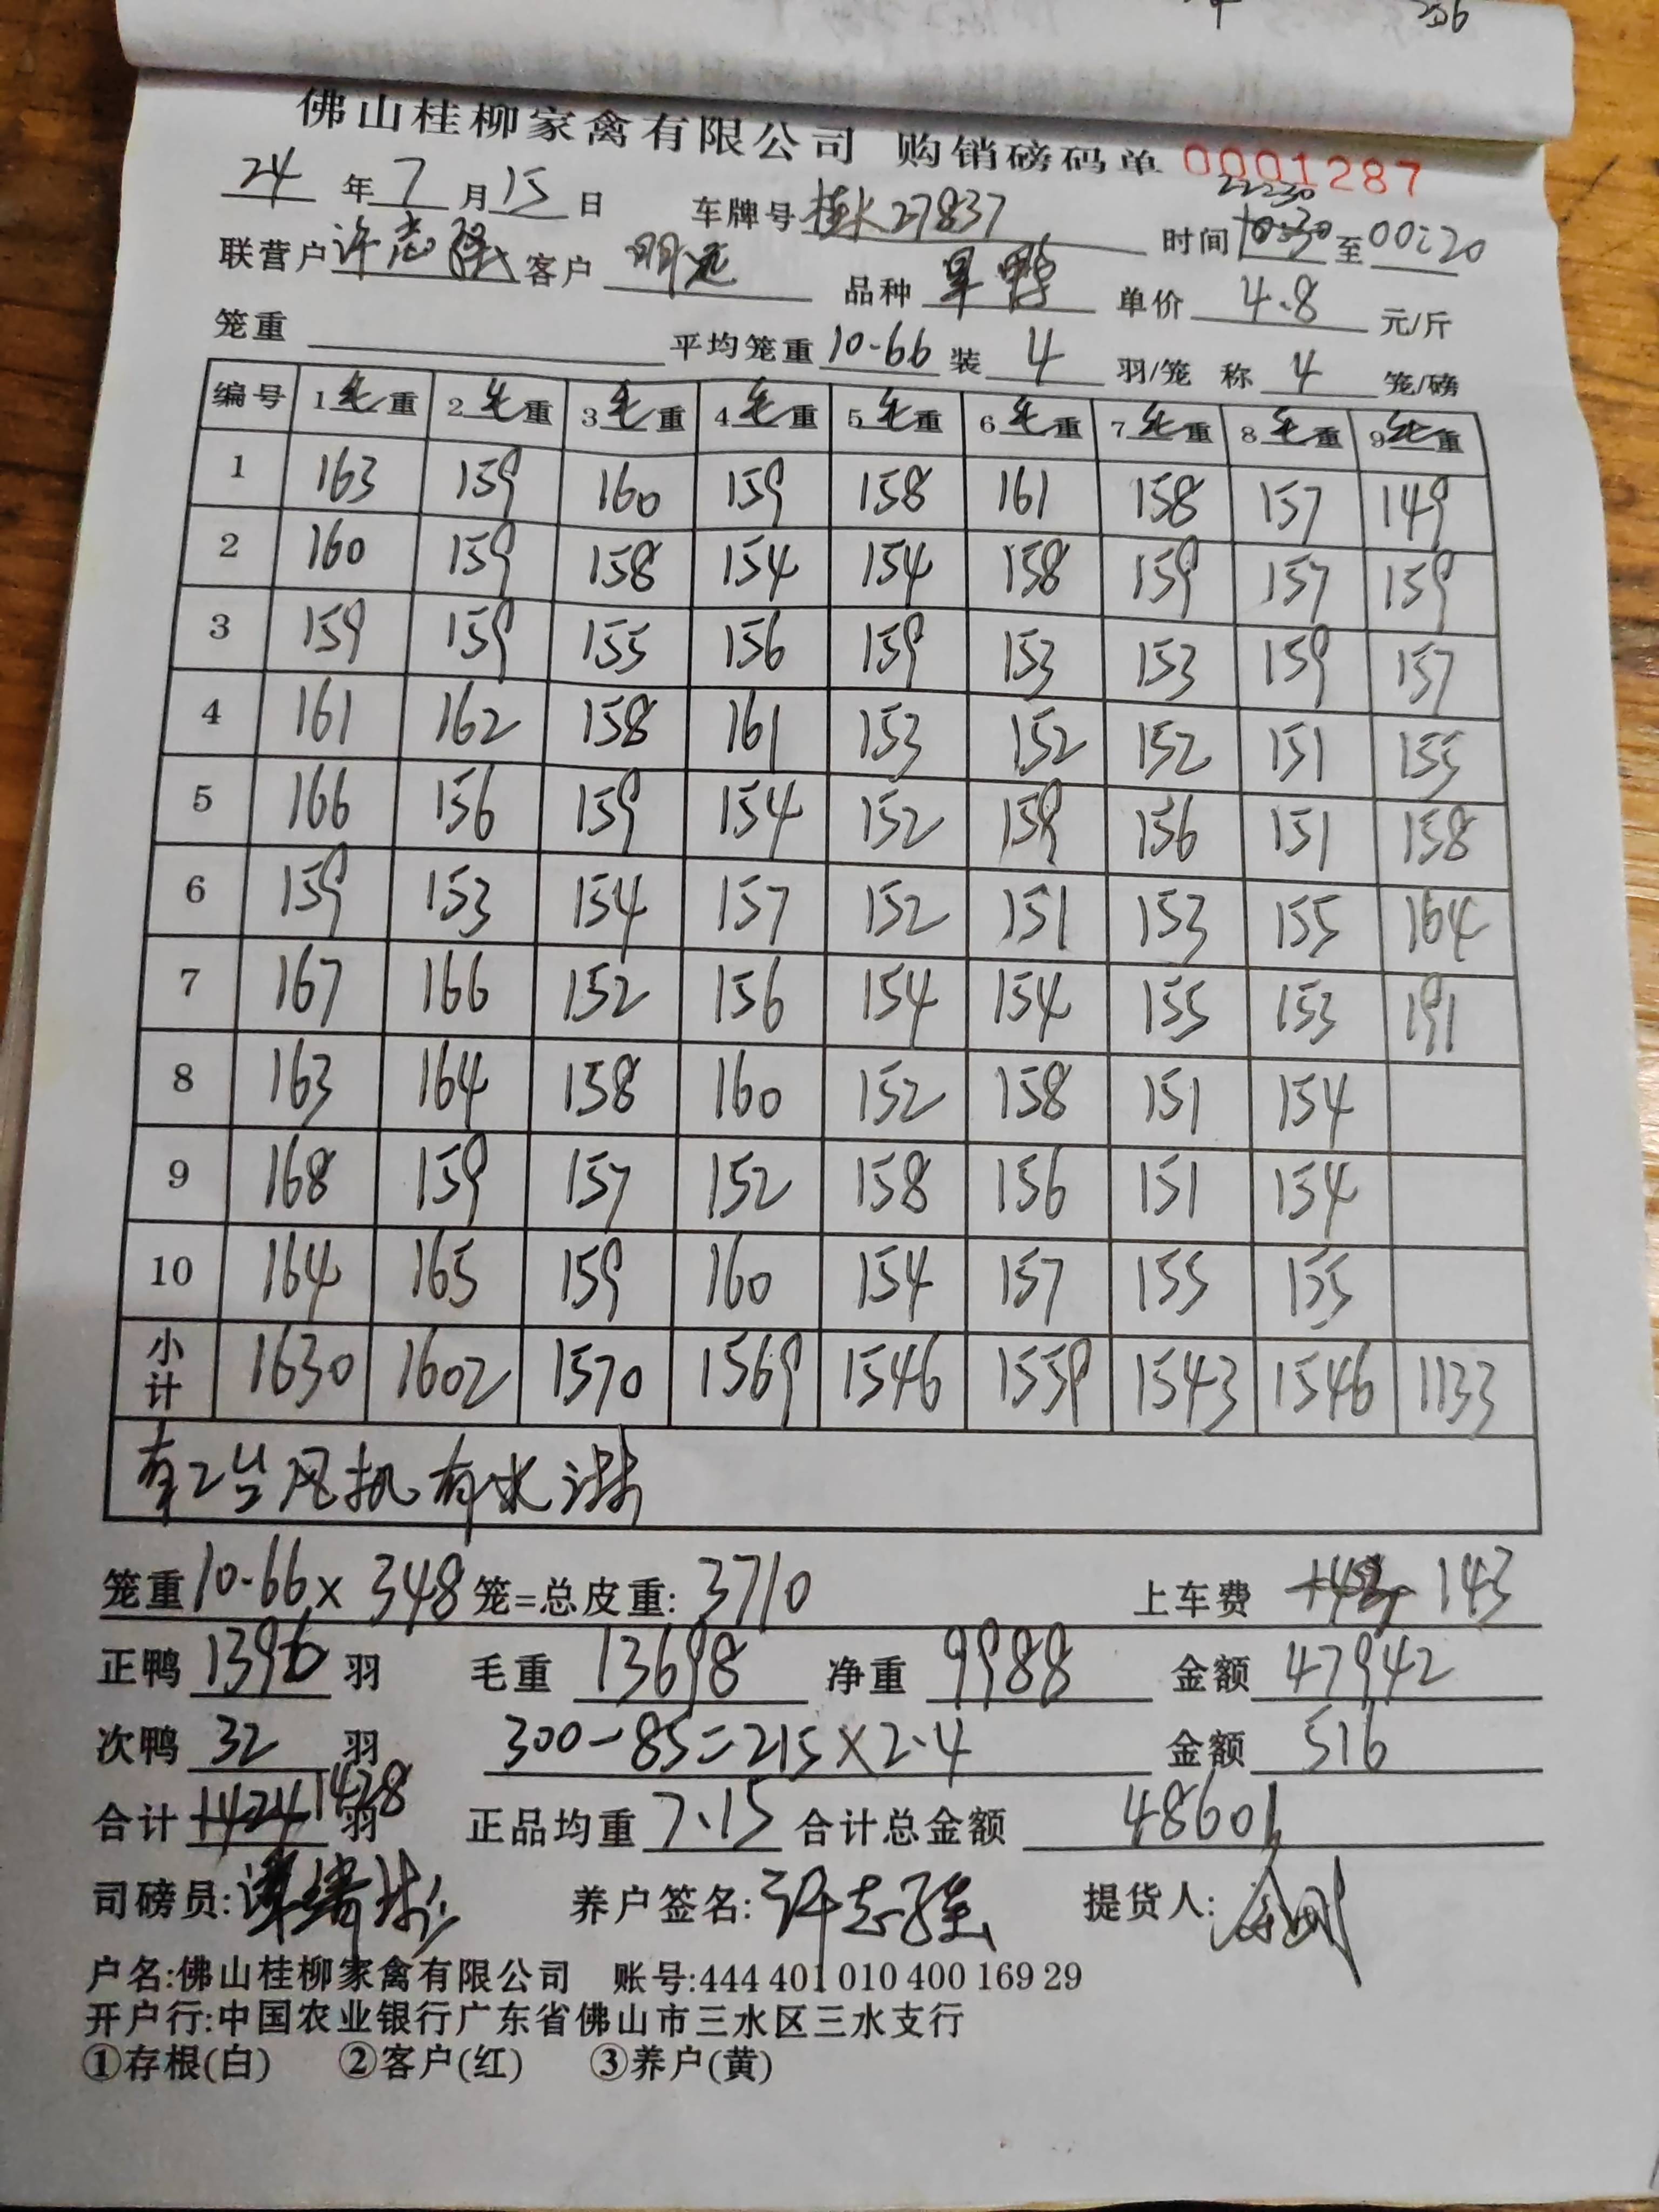 256
佛山桂柳家禽有限公司 购销磅码单 0001287
24 年 7 月 15 日 车牌号 桂K27837 时间 22:30 至 00:20
联营户 许志强 客户 明远 品种 旱鸭 单价 4.8 元/斤
笼重 平均笼重 10.66 装 4 羽/笼 称 4 笼/磅
编号 1毛重 2毛重 3毛重 4毛重 5毛重 6毛重 7毛重 8毛重 9毛重
1 163 159 160 159 158 161 158 157 149
2 160 159 158 154 154 158 159 157 159
3 159 159 155 156 159 153 153 159 157
4 161 162 158 161 153 152 152 151 155
5 166 156 159 154 152 159 156 151 158
6 159 153 154 157 152 151 153 155 164
7 167 166 152 156 154 154 155 153 191
8 163 164 158 160 152 158 151 154
9 168 159 157 152 158 156 151 154
10 164 165 159 160 154 157 155 155
小计 1630 1602 1570 1569 1546 1559 1543 1546 1133
有2台风机有水淋
笼重 10.66 × 348 笼=总皮重: 3710 上车费 143
正鸭 1396 羽 毛重 13698 净重 9988 金额 47942
次鸭 32 羽 300-85=215×2.4 金额 516
合计 1424 1428 羽 正品均重 7.15 合计总金额 48601
司磅员: 养户签名: 许志强 提货人:
户名:佛山桂柳家禽有限公司 账号:444 401 010 400 169 29
开户行:中国农业银行广东省佛山市三水区三水支行
①存根(白) ②客户(红) ③养户(黄)